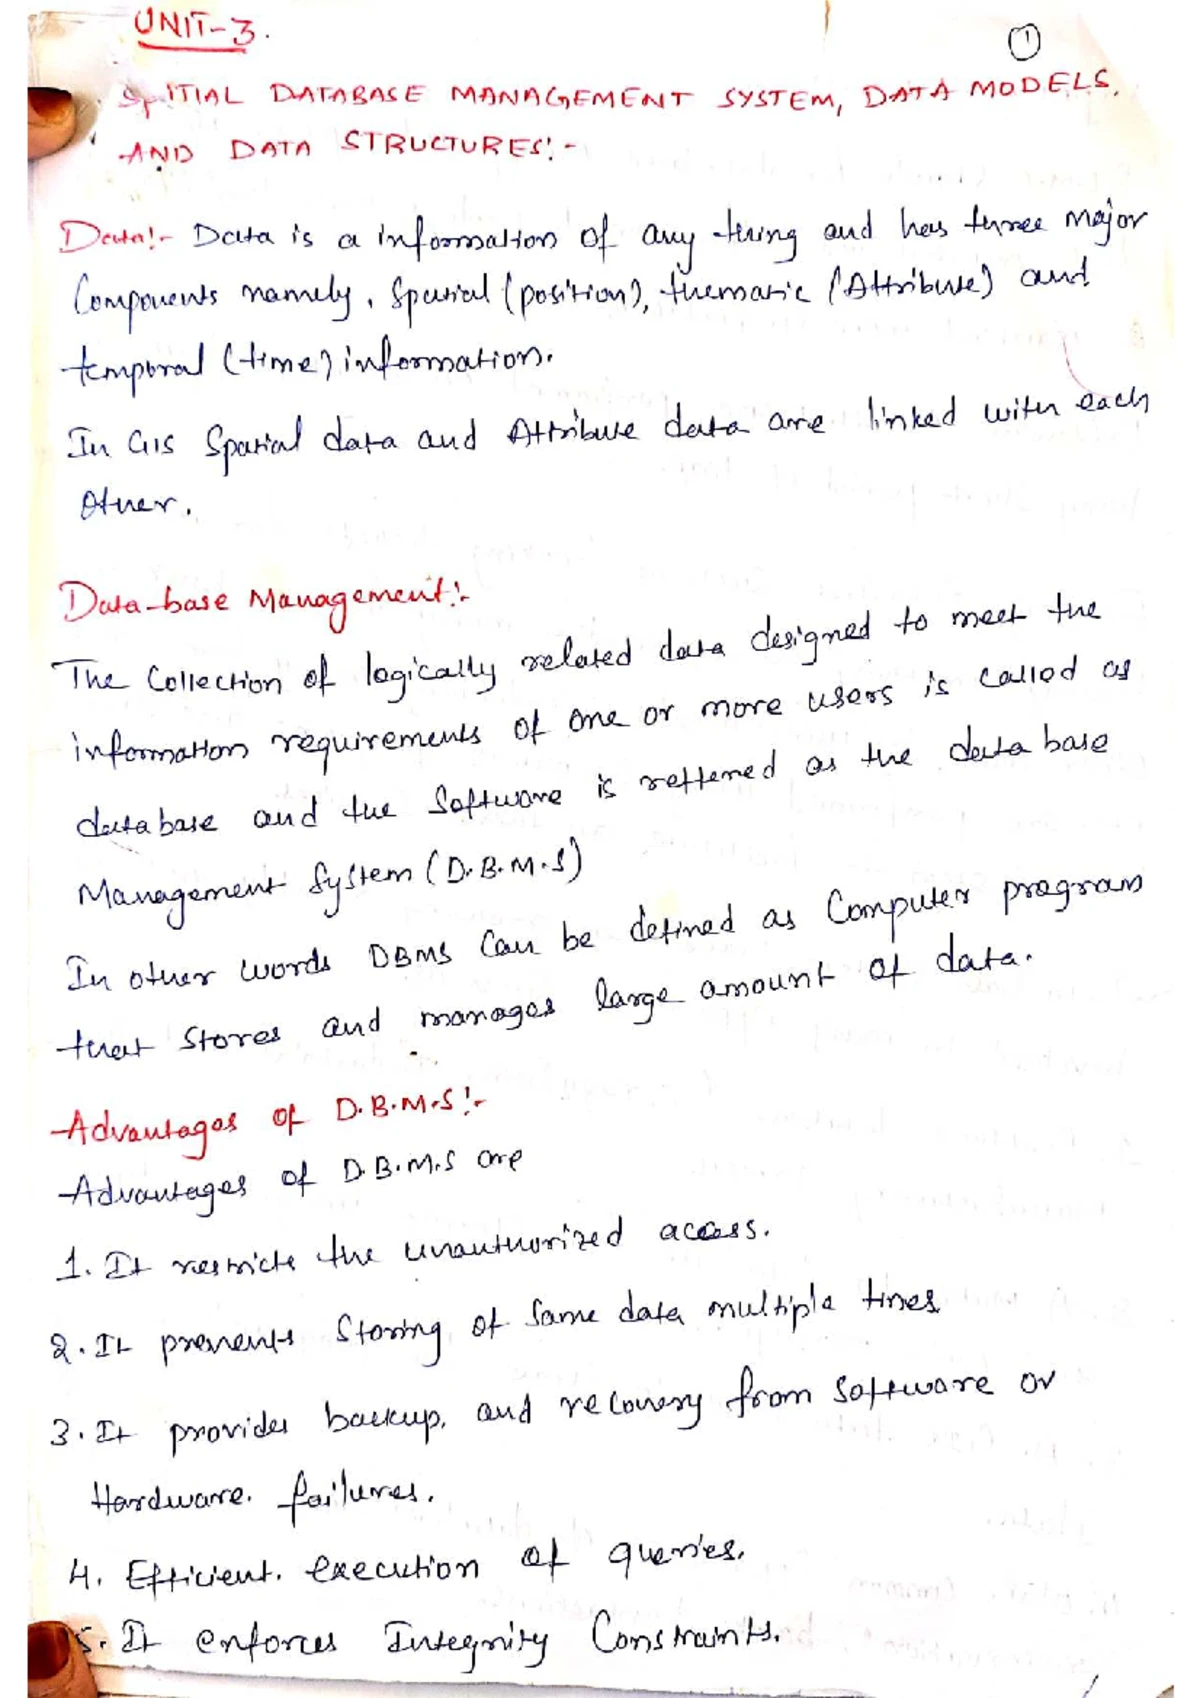 UNIT-3.
1
SpITIAL DATABASE MANAGEMENT SYSTEM, DATA MODELS,
AND DATA STRUCTURES:-
Data:- Data is a information of any thing and has three major
Components namely, Spatial (position), thematic (Attribute) and
temporal (time) information.
In GIS Spatial data and Attribute data are linked with each
Other.
Data-base Management:-
The Collection of logically related data designed to meet the
information requirements of one or more users is called as
database and the Software is reffered as the data base
Management System (D.B.M.S)
In other words DBMS Can be defined as Computer program
that Stores and manages large amount of data.
Advantages of D.B.M.S:-
Advantages of D.B.M.S are
1. It restricts the unauthorized access.
2. It prevents Storing of Same data multiple times
3. It provides backup, and recovery from Software or
Hardware. failures.
4. Efficient. execution of queries.
5. It enforces Integrity Constraints.